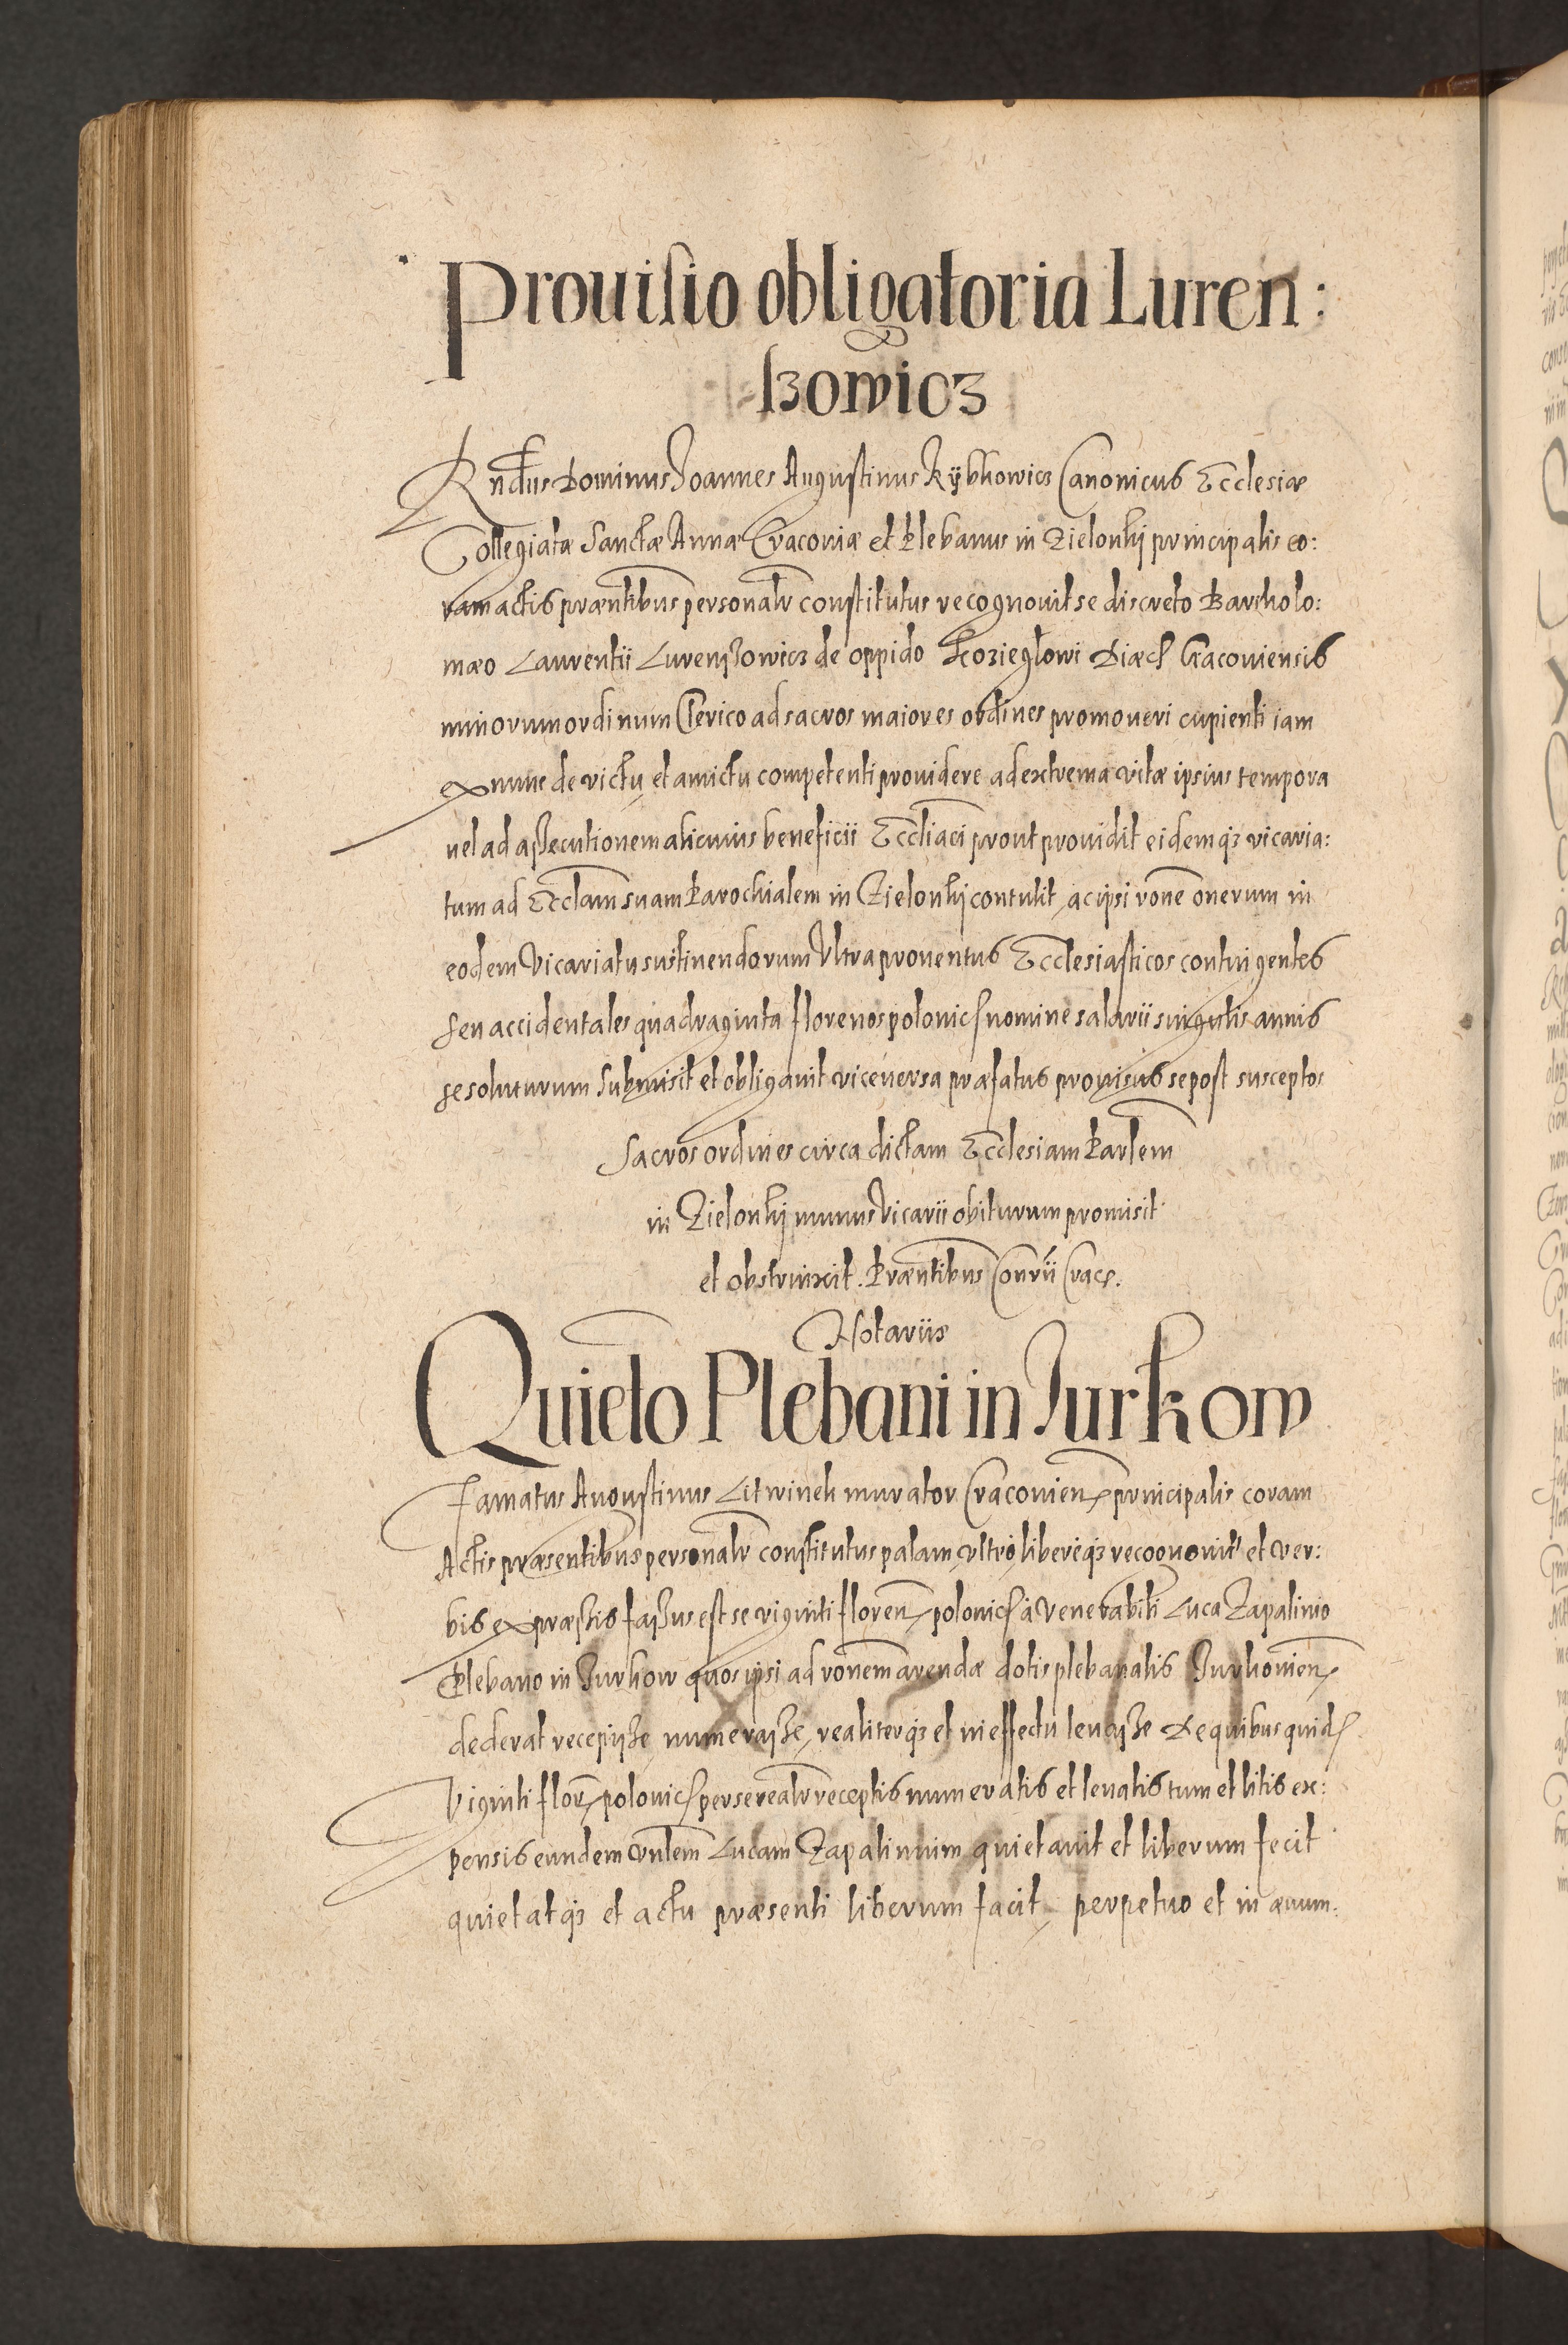 Prouisio obligatoria Luren:
szowicz
Rndus Dominus Joannes Augustinus Rÿbkowicz Canonicus Ecclesiæ
Collegiatæ Sanctæ Annæ Cracouiæ et Plebanus in Zielonkij principalis co:
ram actis præntibus personalr constitutus recognouit se discreto Bartholo:
mæo Laurentii Lurenszowicz de oppido Kozieglowi Diæc Cracouiensis
minorum ordinum Clerico ad sacros maiores ordines promoueri cupienti iam
ex nunc de victu et amictu competenti prouidere ad extrema vitæ ipsius tempora
uel ad assecutionem alicuius beneficii Eccliaci prout prouidit eidemq3 vicaria:
tum ad Ecclam suam Parochialem in Zielonkij contulit ac ipsi rone onerum in
eodem Vicariatu sustinendorum Vltra prouentus Ecclesiasticos contingentes
seu accidentales quadraginta florenos polonic nomine salarii singulis annis
se soluturum submisit et obligauit vice uersa præfatus prouisus se post susceptos
Sacros ordines circa dictam Ecclesiam Parlem
in Zielonkij munus Vicarii obiturum promisit
et obstrinxit. Præntibus Conrii Crac.
Notariis
Quieto Plebani in Jurkow
Famatus Augustinus Litwinek murator Cracouien principalis coram
Actis præsentibus personalr constitutus palam vltro libereq3 recognouit et ver:
bis expræssis fassus est se viginti floren polonic à Venerabili Luca Zapalinio
Plebano in Jurkow quos ipsi ad ronem arendæ dotis plebanalis Jurkouien
dederat recepisse numerasse, realiterq3 et in effectu leuasse De quibus quid
Viginti flor polonic per se realr receptis numeratis et leuatis tum et litis ex:
pensis eundem vnlem Lucam Zapalinium quietauit et liberum fecit
quietatq3 et actu præsenti liberum facit perpetuo et in æuum.